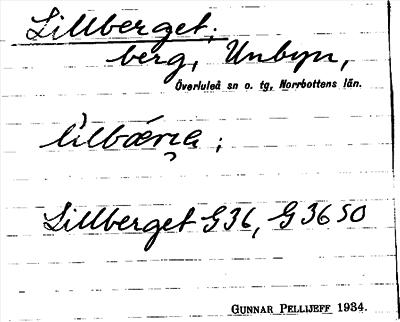 Lillberget;
berg, Unbyn,
Överluleå sn o. tg, Norrbottens län.
Lillberget G36, G3650
GUNNAR PELLIJEFF 1934.